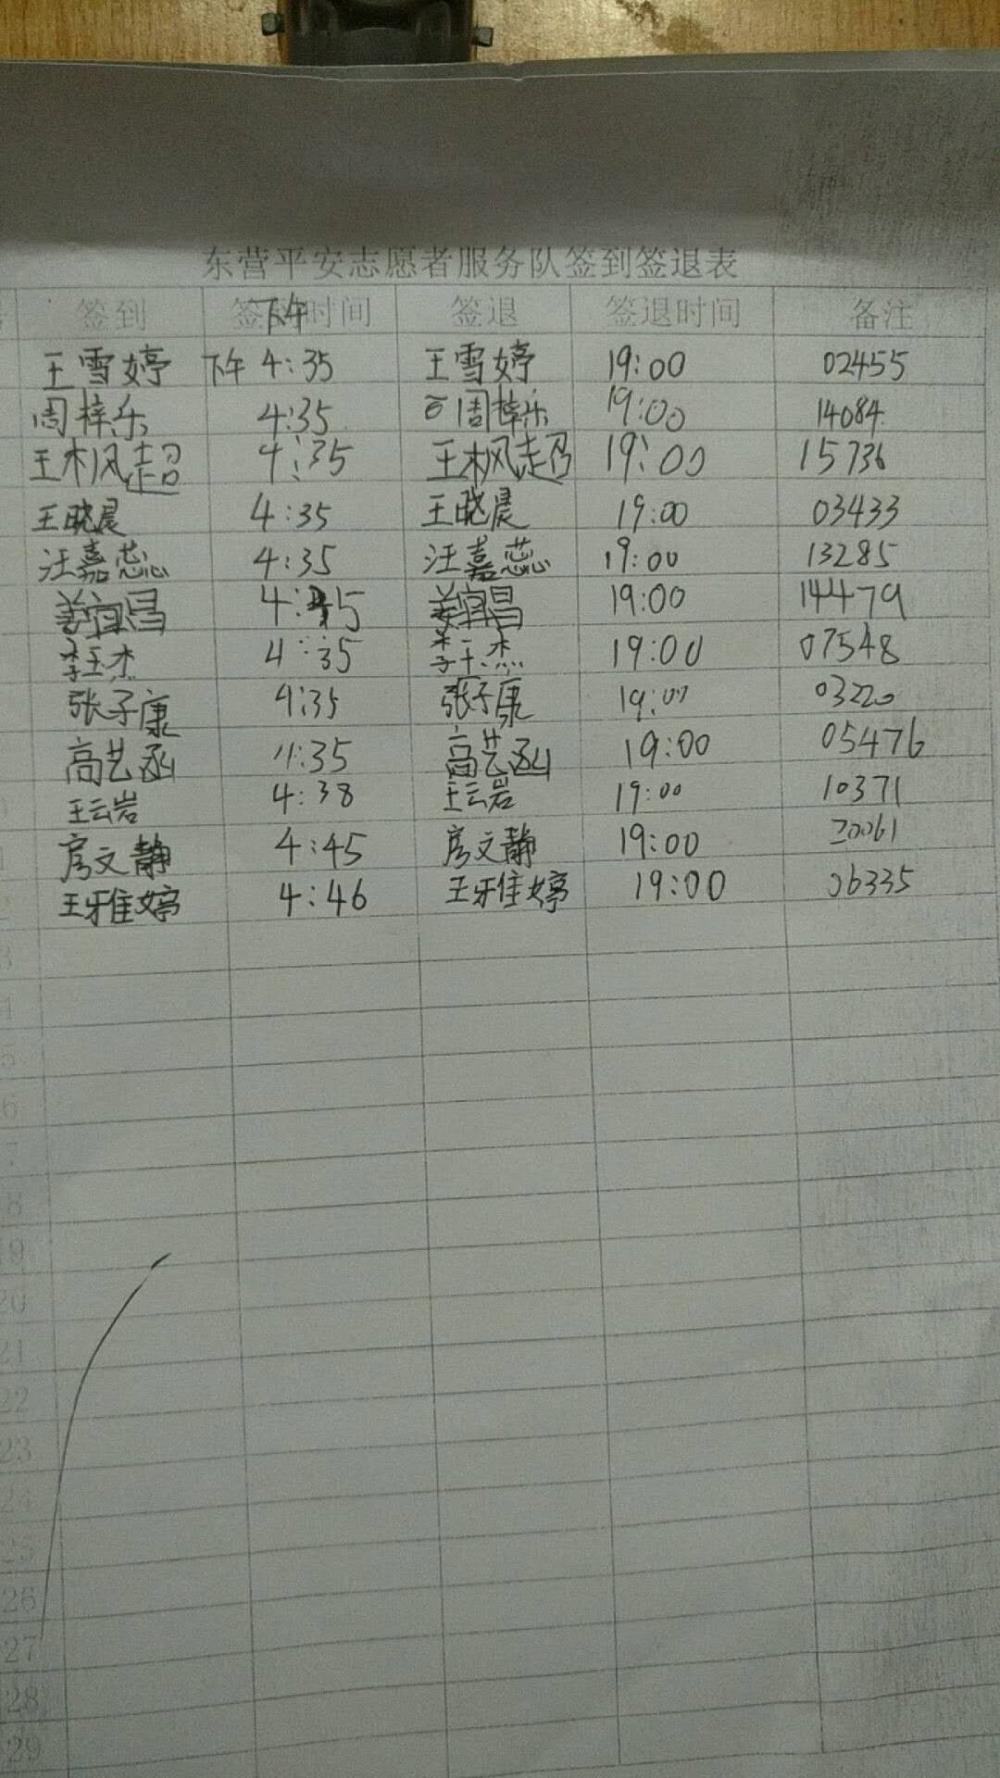 东营平安志愿者服务队签到签退表
签到 签到时间 签退 签退时间 备注
下午
王雪婷 下午 4:35 王雪婷 19:00 02455
周梓乐 4:35 周梓乐 19:00 14084
王枫超 4:35 王枫超 19:00 15736
王晓晨 4:35 王晓晨 19:00 03433
汪嘉蕊 4:35 汪嘉蕊 19:00 13285
姜宜昌 4:35 姜宜昌 19:00 14479
李玉杰 4:35 李玉杰 19:00 07548
张子康 4:35 张子康 19:00 03220
高艺函 4:35 高艺函 19:00 05476
王云岩 4:38 王云岩 19:00 10371
房文静 4:45 房文静 19:00 20061
王雅婷 4:46 王雅婷 19:00 06335
6
7
8
19
20
21
22
23
24
25
26
27
28
29